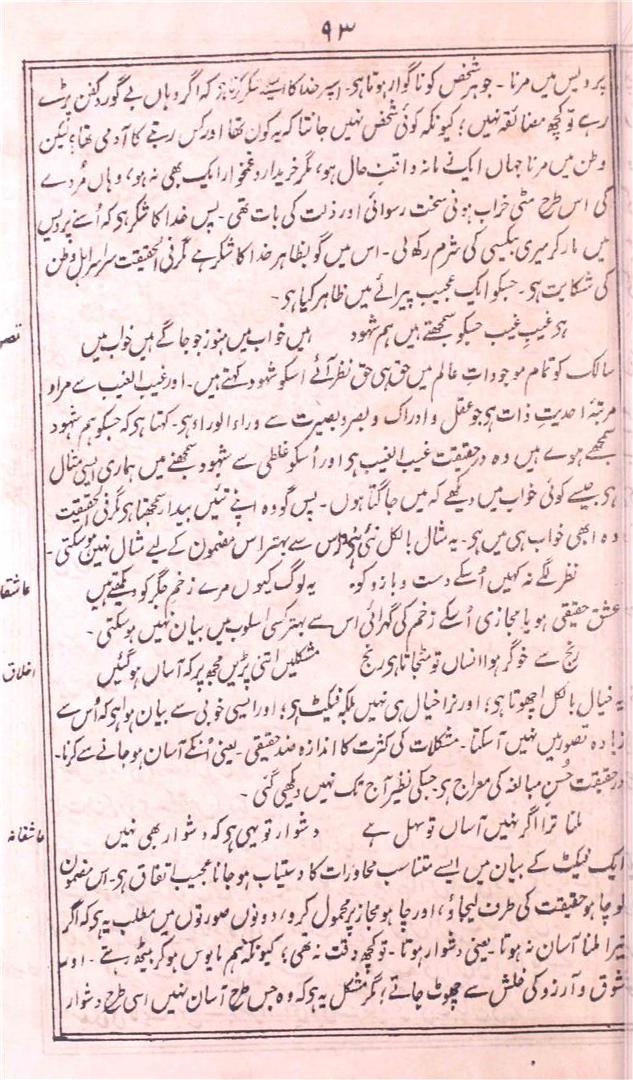 ۹۳
پردیس میں مرنا - جو ہر شخص کو ناگوار ہوتا ہی - اسپر خدا کا اسلیے شکر کرتا ہی کہ اگر وہاں بے گور و کفن پڑے
رہے تو کچھ مضائقہ نہیں؛ کیونکہ کوئی شخص نہیں جانتا کہ یہ کون تھا اور کس رتبے کا آدمی تھا؛ لیکن
وطن میں مرنا جہاں ایک زمانہ واقف حال ہو، مگر خریدار و غمخوار ایک بھی نہ ہو، وہاں مُردے
کی اس طرح مٹی خراب ہونی سخت رسوائی اور ذلت کی بات تھی - پس خدا کا شکر ہی کہ اُسنے پردیس
میں مار کر میری بیکسی کی شرم رکھ لی - اس میں گو بظاہر خدا کا شکر ہے مگر فی الحقیقت سراسر اہل وطن
کی شکایت ہی - جسکو ایک عجیب پیرائے میں ظاہر کیا ہی -
ہی غیبِ غیب جسکو سمجھتے ہیں ہم شہود ہیں خواب میں ہنوز جو جاگے ہیں خواب میں
تصو
سالک کو تمام موجوداتِ عالم میں حق ہی حق نظر آئے اسکو شہود کہتے ہیں - اور غیب الغیب سے مراد
مرتبۂ احدیتِ ذات ہی جو عقل و ادراک و بصر و بصیرت سے وراء الوراء ہی - کہتا ہی کہ جسکو ہم شہود
سمجھے ہوے ہیں وہ درحقیقت غیب الغیب ہی اور اُسکو غلطی سے شہود سمجھنے میں ہماری ایسی مثال
ہی جیسے کوئی خواب میں دیکھے کہ میں جاگتا ہوں - پس گو وہ اپنے تئیں بیدار سمجھتا ہی مگر فی الحقیقت
وہ ابھی خواب ہی میں ہی - یہ مثال بالکل نئی ہی اور اس سے بہتر اس مضمون کے لیے مثال نہیں ہو سکتی -
نظر لگے نہ کہیں اُسکے دست و بازو کو یہ لوگ کیوں مرے زخمِ جگر کو دیکھتے ہیں
عاشقا
عشق حقیقی ہو یا مجازی اُسکے زخم کی گہرائی اس سے بہتر کسی اسلوب میں بیان نہیں ہو سکتی -
رنج سے خوگر ہوا انساں تو مٹجاتا ہی رنج مشکلیں اتنی پڑیں مجھ پر کہ آساں ہو گئیں
اخلاق
یہ خیال بالکل اچھوتا ہی؛ اور نرا خیال ہی نہیں بلکہ فیکٹ ہی؛ اور ایسی خوبی سے بیان ہوا ہی کہ اُس سے
زیادہ تصور میں نہیں آسکتا - مشکلات کی کثرت کا اندازہ ضد حقیقی - یعنی اُنکے آسان ہو جانے سے کرنا -
درحقیقت حُسنِ مبالغہ کی معراج ہی جسکی نظیر آج تک نہیں دیکھی گئی -
ملنا ترا اگر نہیں آساں تو سہل ہے دشوار تو یہی ہی کہ دشوار بھی نہیں
عاشقانہ
ایک فیکٹ کے بیان میں ایسے متناسب محاورات کا دستیاب ہو جانا عجیب اتفاق ہی - اس مضمون
کو چاہو حقیقت کی طرف لیجاؤ، اور چاہو مجاز پر محمول کرو، دونوں صورتوں میں مطلب یہ ہی کہ اگر
تیرا ملنا آسان نہ ہوتا - یعنی دشوار ہوتا - تو کچھ دقت نہ تھی؛ کیونکہ ہم مایوس ہو کر بیٹھ رہتے - اور
شوق و آرزو کی خلش سے چھوٹ جاتے؛ مگر مشکل یہ ہی کہ وہ جس طرح آسان نہیں اسی طرح دشوار